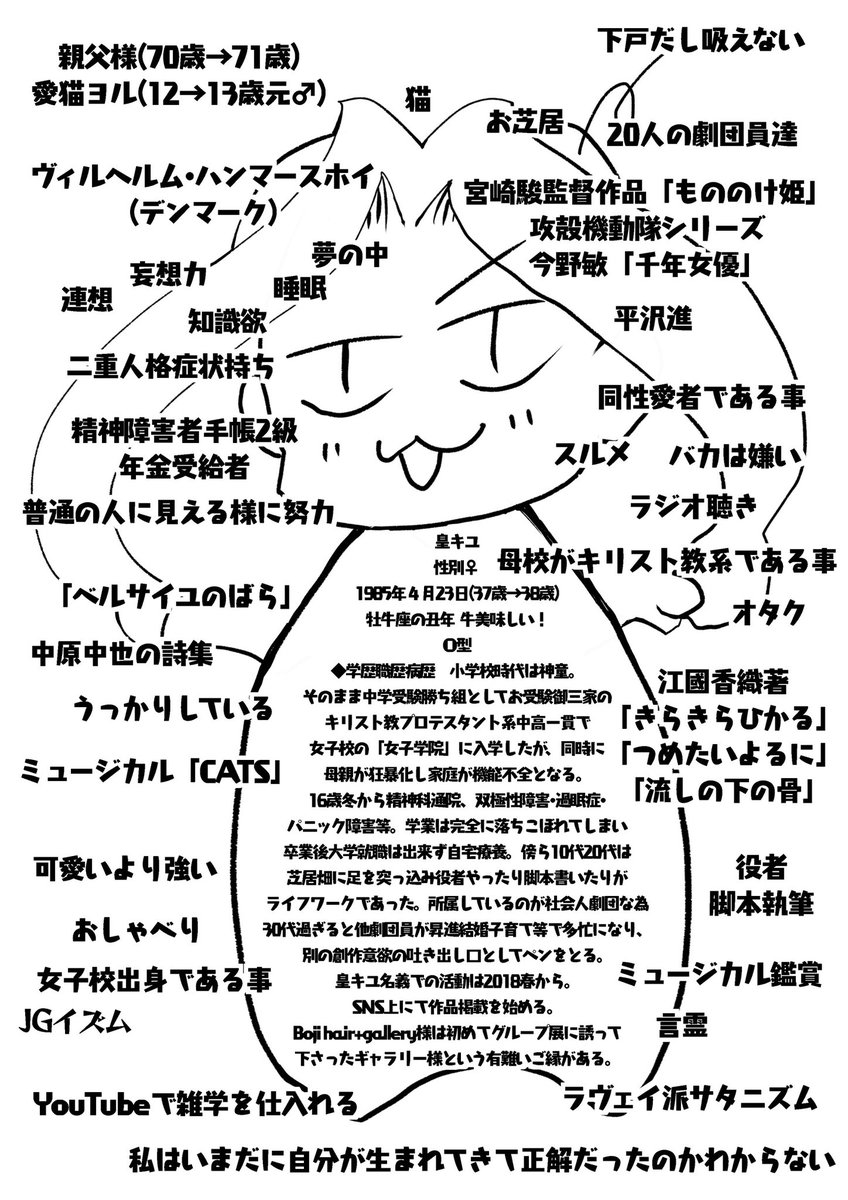 親父様(70歳→71歳)
愛猫ヨル(12→13歳元♂)
猫
下戸だし吸えない
お芝居
20人の劇団員達
ヴィルヘルム・ハンマースホイ
(デンマーク)
宮崎駿監督作品「もののけ姫」
攻殻機動隊シリーズ
今野敏「千年女優」
夢の中
妄想力
睡眠
連想
知識欲
平沢進
二重人格症状持ち
同性愛者である事
精神障害者手帳2級
年金受給者
スルメ
バカは嫌い
普通の人に見える様に努力
ラジオ聴き
母校がキリスト教系である事
「ベルサイユのばら」
オタク
中原中也の詩集
うっかりしている
江國香織著
「きらきらひかる」
「つめたいよるに」
「流しの下の骨」
ミュージカル「CATS」
皇キユ
性別♀
1985年4月23日(37歳→38歳)
牡牛座の丑年 牛美味しい!
O型
◆学歴職歴病歴 小学校時代は神童。
そのまま中学受験勝ち組としてお受験御三家の
キリスト教プロテスタント系中高一貫で
女子校の「女子学院」に入学したが、同時に
母親が狂暴化し家庭が機能不全となる。
16歳冬から精神科通院、双極性障害・過眠症・
パニック障害等。学業は完全に落ちこぼれてしまい
卒業後大学就職は出来ず自宅療養。傍ら10代20代は
芝居畑に足を突っ込み役者やったり脚本書いたりが
ライフワークであった。所属しているのが社会人劇団な為
30代過ぎると他劇団員が昇進結婚子育て等で多忙になり、
別の創作意欲の吐き出し口としてペンをとる。
皇キユ名義での活動は2018春から。
SNS上にて作品掲載を始める。
Boji hair+gallery様は初めてグループ展に誘って
下さったギャラリー様という有難いご縁がある。
可愛いより強い
役者
脚本執筆
おしゃべり
女子校出身である事
JGイズム
ミュージカル鑑賞
言霊
YouTubeで雑学を仕入れる
ラヴェイ派サタニズム
私はいまだに自分が生まれてきて正解だったのかわからない